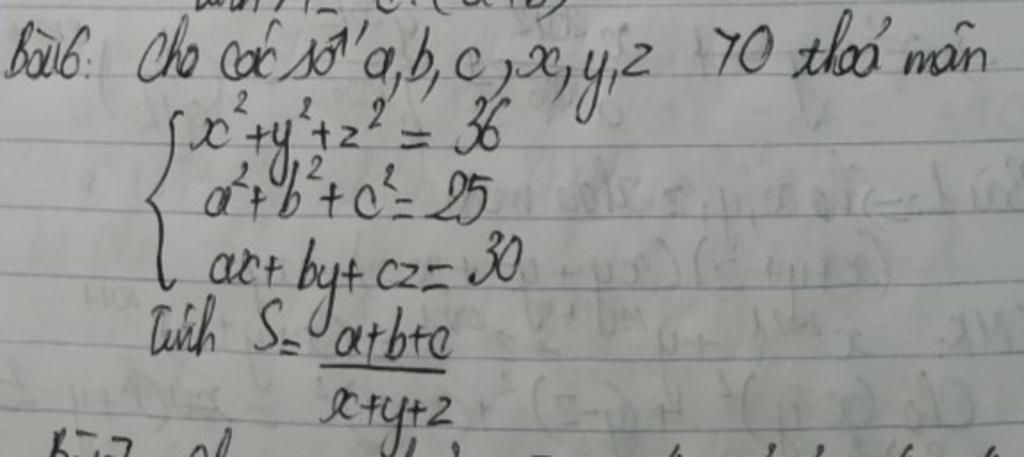 Bài 6: Cho các số a, b, c, x, y, z >0 thoả mãn
x²+y²+z² = 36
a²+b²+c² = 25
ax+by+cz=30
Tính S= a+b+c
x+y+z